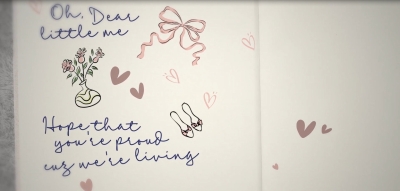 Oh, Dear
little me
Hope that
you're proud
cuz we're living